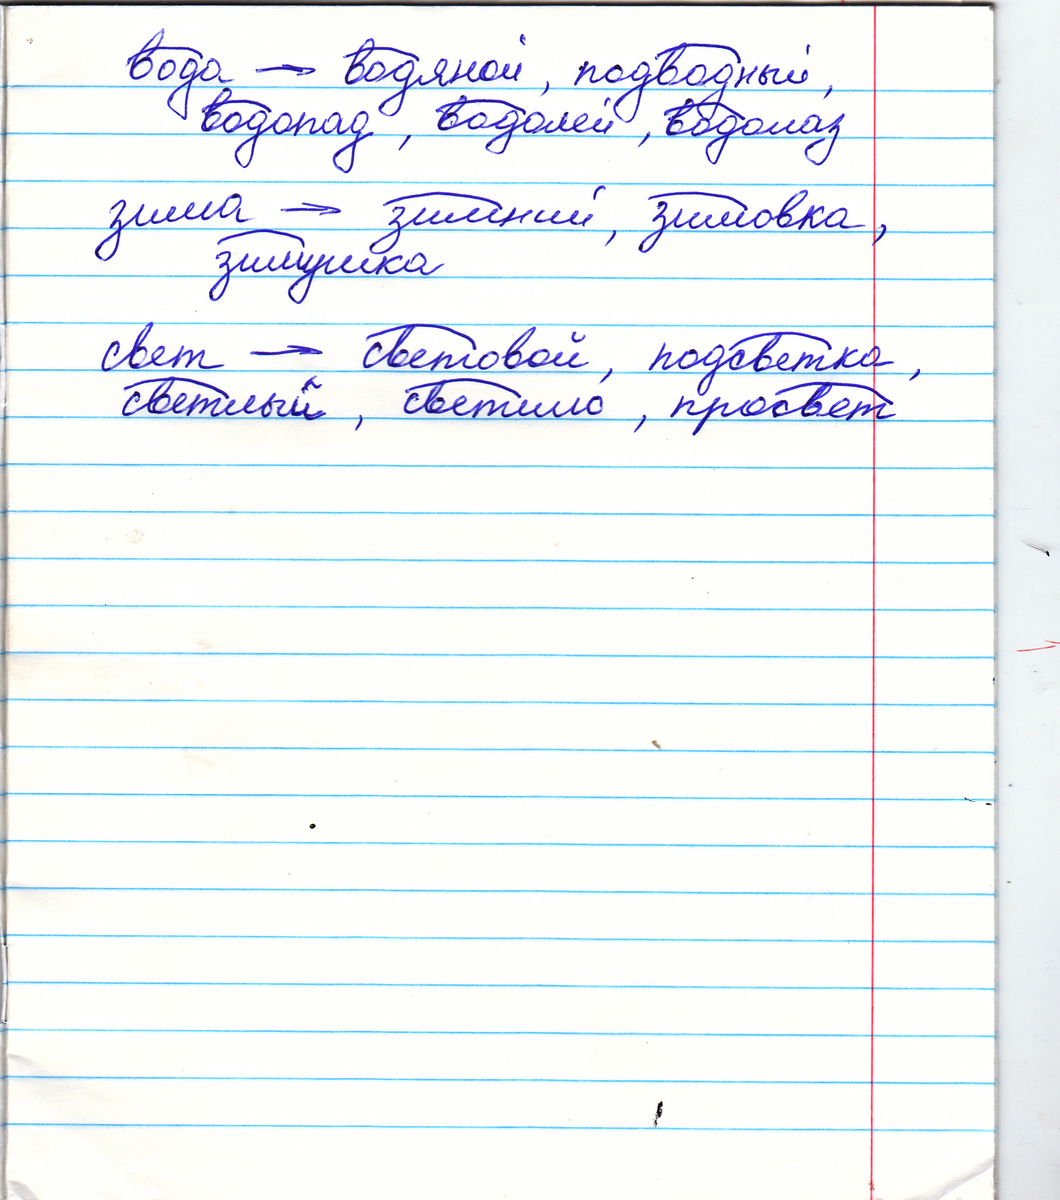 вода → водяной, подводный,
водопад, водолей, водолаз
зима → зимний, зимовка,
зимушка
свет → световой, подсветка,
светлый, светило, просвет